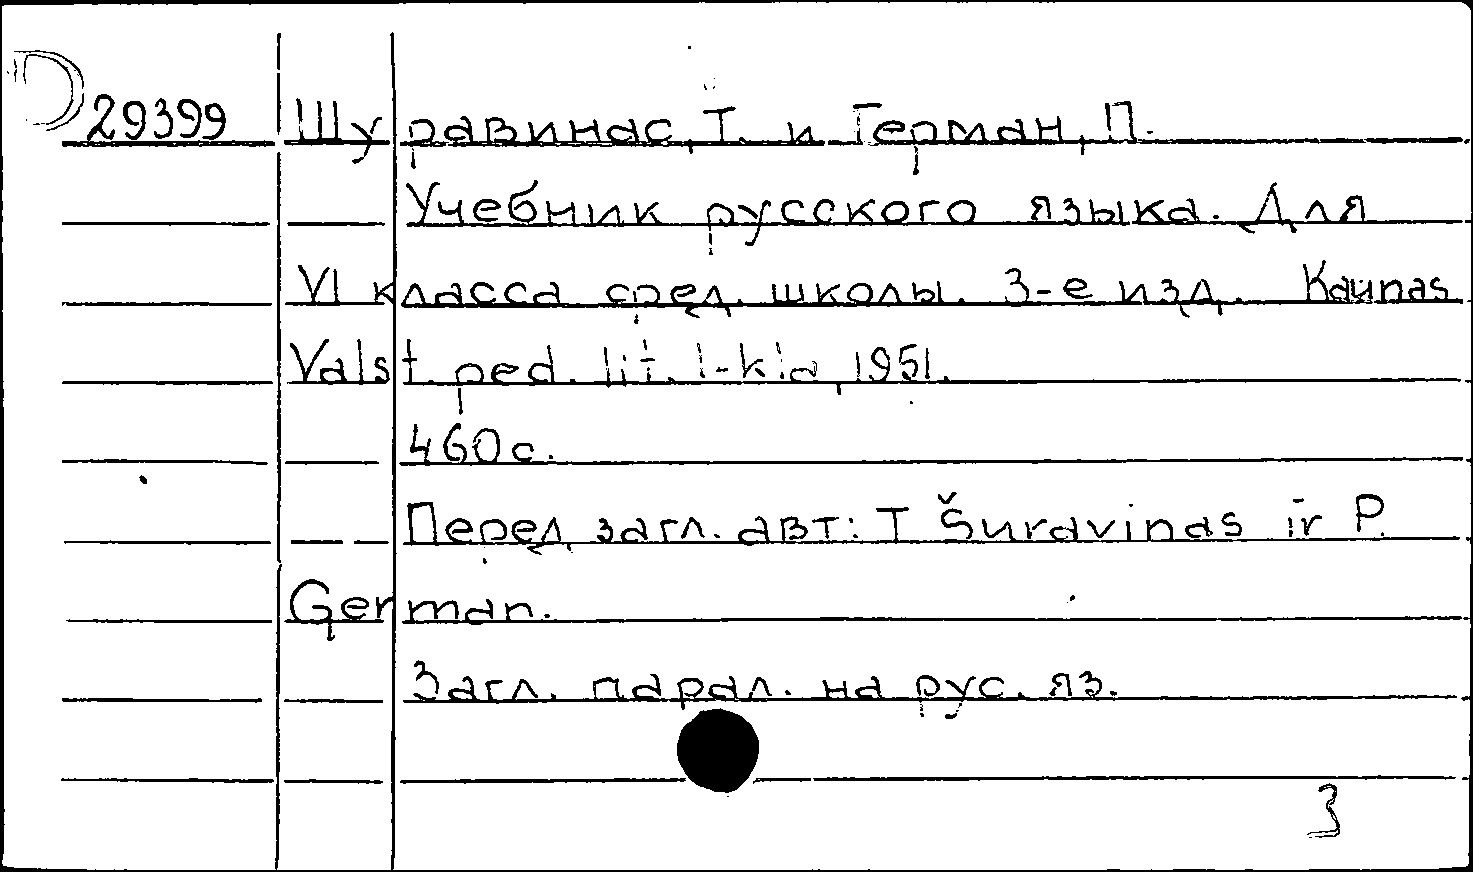 29399 Шуравинас, Т. и Герман, П.
Учебник русского языка. Для
VI класса сред. школы. 3-е изд. Kaunas
Valst. ped. lit. l-kla, 1951.
460 с.
Перед загл. авт: T Šuravinas ir P.
German.
Загл. парал. на рус. яз.
3